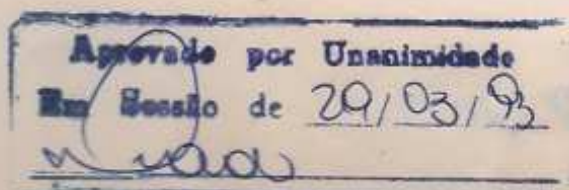 Aprovado por Unanimidade
Em Sessão de 29/03/93